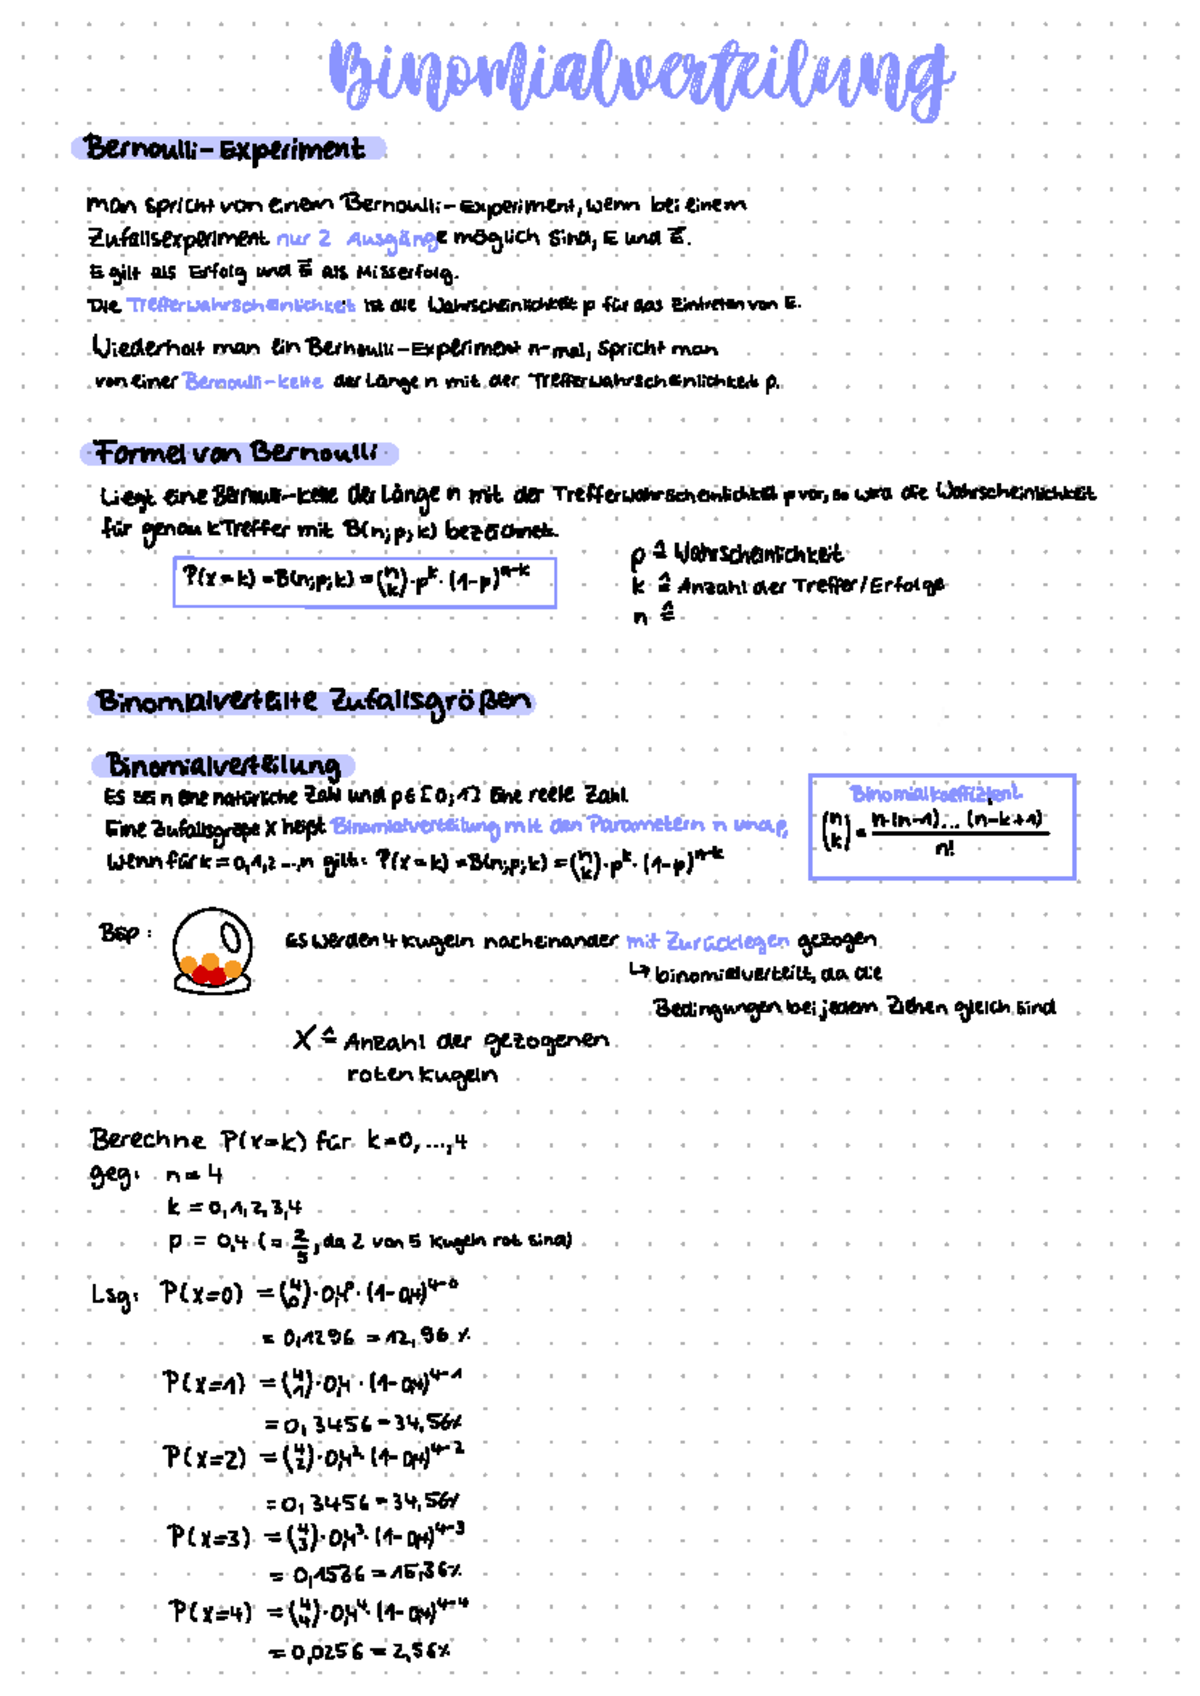 Binomialverteilung
Bernoulli-Experiment
man spricht von einem Bernoulli-Experiment, wenn bei einem
Zufallsexperiment nur 2 Ausgänge möglich sind, E und E̅.
E gilt als Erfolg und E̅ als Misserfolg.
Die Trefferwahrscheinlichkeit ist die Wahrscheinlichkeit p für das Eintreten von E.
Wiederholt man ein Bernoulli-Experiment n-mal, spricht man
von einer Bernoulli-kette der Länge n mit der Trefferwahrscheinlichkeit p.
Formel von Bernoulli
Liegt eine Bernoulli-kette der Länge n mit der Trefferwahrscheinlichkeit p vor, so wird die Wahrscheinlichkeit
für genau k Treffer mit B(n;p;k) bezeichnet.
P(X=k) = B(n;p;k) = (n k) · p^k · (1-p)^n-k
p ≙ Wahrscheinlichkeit
k ≙ Anzahl der Treffer/Erfolge
n ≙
Binomialverteilte Zufallsgrößen
Binomialverteilung
Es sei n eine natürliche Zahl und p∈[0;1] eine reele Zahl
Eine Zufallsgröße X heißt Binomialverteilung mit den Parametern n und p,
wenn für k = 0,1,2...,n gilt: P(X=k) = B(n;p;k) = (n k) · p^k · (1-p)^n-k
Binomialkoeffizient
(n k) = n·(n-1)... (n-k+1) / n!
Bsp:
Es werden 4 kugeln nacheinander mit Zurücklegen gezogen
↳ binomialverteilt, da die
Bedingungen bei jedem Ziehen gleich sind
X ≙ Anzahl der gezogenen
roten kugeln
Berechne P(X=k) für k=0,...,4
geg: n = 4
k = 0,1,2,3,4
p = 0,4 (= 2/5, da 2 von 5 kugeln rot sind)
Lsg: P(X=0) = (4 0) · 0,4^0 · (1-0,4)^4-0
= 0,1296 = 12,96 %
P(X=1) = (4 1) · 0,4 · (1-0,4)^4-1
= 0,3456 = 34,56%
P(X=2) = (4 2) · 0,4^2 · (1-0,4)^4-2
= 0,3456 = 34,56%
P(X=3) = (4 3) · 0,4^3 · (1-0,4)^4-3
= 0,1536 = 15,36%
P(X=4) = (4 4) · 0,4^4 · (1-0,4)^4-4
= 0,0256 = 2,56%